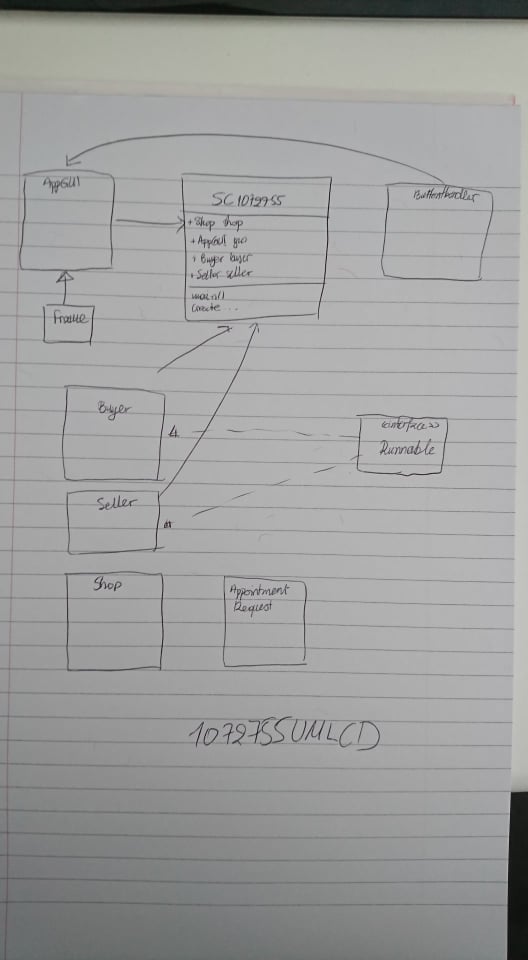 AppGUI
SC1072755
ButtonHandler
+ Shop shop
+ AppGUI gui
+ Buyer buyer
+ Seller seller
main()
Create ...
Frame
Buyer
<interface>>
Runnable
Seller
Shop
Appointment
Request
1072755UMLCD